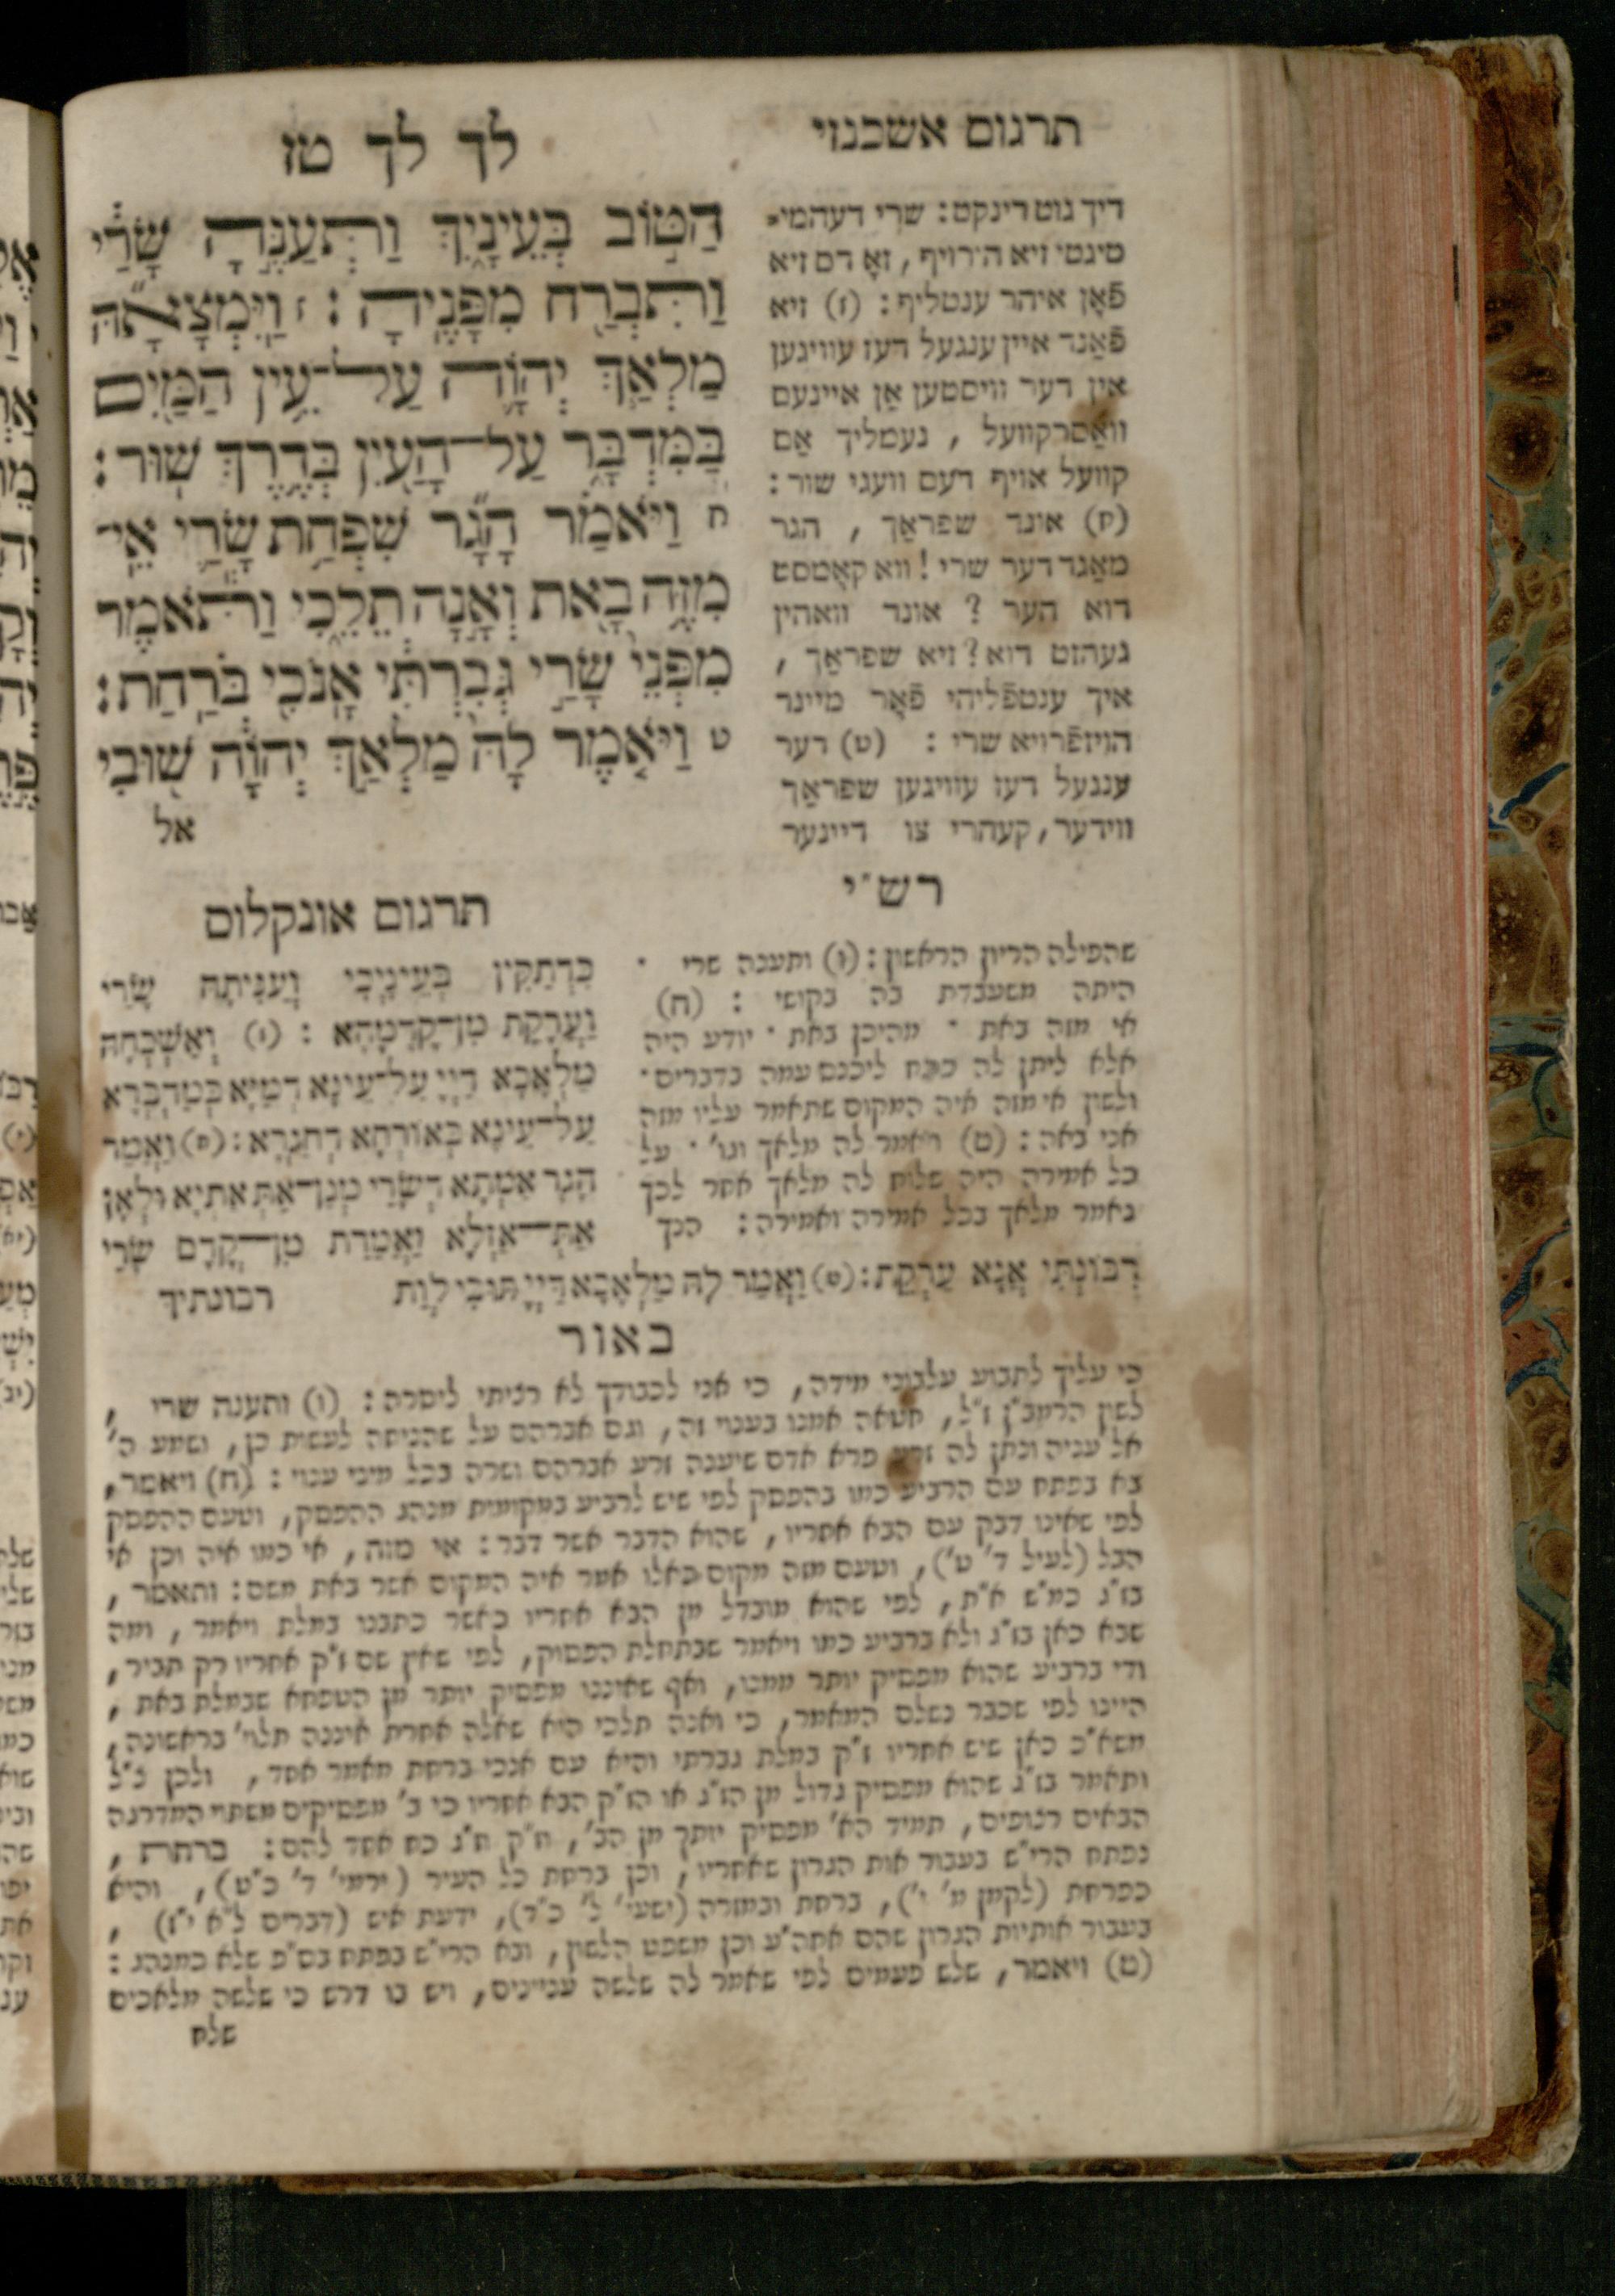 תרגום אשכנזי
לך לך טז
דיך גוט דינקט: שרי דעהמי־
טיגטי זיא הירויף, זאָ דס זיא
פֿאָן איהר ענטליף: (ז) זיא
פֿאַנד איין ענגעל דעז עוויגען
אין דער וויסטען אַן איינעם
וואַסרקוועל, נעמליך אַם
קוועל אויף דעם וועגי שור:
(ח) אונד שפראַך, הגר
מאַגד דער שרי! ווא קאָממסט
דוא הער? אונד וואהין
געהזט דוא? זיא שפראַך,
איך ענטפֿליהי פֿאָר מיינר
הויזפֿרויא שרי: (ט) דער
ענגעל דעז עוויגען שפראַך
ווידער, קעהרי צו דיינער
הַטּ֣וֹב בְּעֵינָ֑יִךְ וַתְּעַנֶּ֣הָ שָׂרַ֔י
וַתִּבְרַ֖ח מִפָּנֶֽיהָ: ז וַֽיִּמְצָאָ֞הּ
מַלְאַ֧ךְ יְהוָ֛ה עַל־עֵ֥ין הַמַּ֖יִם
בַּמִּדְבָּ֑ר עַל־הָעַ֖יִן בְּדֶ֥רֶךְ שֽׁוּר:
ח וַיֹּאמַ֗ר הָגָ֞ר שִׁפְחַ֥ת שָׂרַ֛י אֵֽי־
מִזֶּ֥ה בָ֖את וְאָ֣נָה תֵלֵ֑כִי וַתֹּ֕אמֶר
מִפְּנֵי֙ שָׂרַ֣י גְּבִרְתִּ֔י אָנֹכִ֖י בֹּרַֽחַת:
ט וַיֹּ֤אמֶר לָהּ֙ מַלְאַ֣ךְ יְהוָ֔ה שׁ֖וּבִי
אל
רש״י
שהפילה הריון הראשון: (ו) ותענה שרי ·
היתה משעבדת בה בקושי: (ח)
אי מזה באת · מהיכן באת · יודע היה
אלא ליתן לה פתח ליכנס עמה בדברים·
ולשון אי מזה איה המקום שתאמר עליו מזה
אני באה: (ט) ויאמר לה מלאך וגו׳ · על
כל אמירה היה שלוח לה מלאך אחר לכך
נאמר מלאך בכל אמירה ואמירה: הנך
תרגום אונקלוס
כִּדְתַקִּין בְּעֵינָיְכִי וְעַנִּיתַהּ שָׂרַי
וַעֲרָקַת מִן־קֳדָמָהָא: (ז) וְאַשְׁכְּחַהּ
מַלְאֲכָא דַיְיָ עַל־עֵינָא דְמַיָּא בְּמַדְבְּרָא
עַל־עֵינָא בְּאוֹרְחָא דְחַגְרָא: (ח) וַאֲמַר
הָגָר אַמְתָא דְשָׂרַי מְנַן־אַתְּ אַתְיָא וּלְאָן
אַתְּ־אָזְלָא וַאֲמַרַת מִן־קֳדָם שָׂרַי
רִבּוֹנְתִּי אֲנָא עַרְקַת: (ט) וַאֲמַר לַהּ מַלְאֲכָא דַיְיָ תּוּבִי לְוַת
רבונתיך
באור
כי עליך לתבוע עלבוני מידה, כי אני לכבודך לא רציתי ליסרה: (ו) ותענה שרי,
לשון הרמב״ן ז״ל, חטאה אמנו בענוי זה, וגם אברהם על שהניחה לעשות כן, ושמע ה׳
אל עניה ונתן לה זרע פרא אדם שיענה זרע אברהם ושרה בכל מיני ענוי: (ח) ויאמר,
בא בפתח עם הרביע כמו בהפסק לפי שיש לרביע במקומות מנהג ההפסק, וטעם ההפסק
לפי שאינו דבק עם הבא אחריו, שהוא הדבר אשר דבר: אי מזה, אי כמו איה וכן אי
הבל (לעיל ד׳ ט׳), וטעם מזה מקום כאלו אמר איה המקום אשר באת משם: ותאמר,
בז״ג כמ״ש א״ת, לפי שהוא מובדל מן הבא אחריו כאשר כתבנו במלת ויאמר, ומה
שבא כאן בז״ג ולא ברביע כמו ויאמר שבתחלת הפסוק, לפי שאין שם ז״ק אחריו רק תביר,
ודי ברביע שהוא מפסיק יותר ממנו, ואף שאיננו מפסיק יותר מן הטפחא שבמלת באת,
היינו לפי שכבר נשלם המאמר, כי ואנה תלכי היא שאלה אחרת איננה תלוי׳ בראשונה,
משא״כ כאן שיש אחריו ז״ק במלת גברתי והיא עם אנכי ברחת מאמר אחד, ולכן צ״ל
ותאמר בז״ג שהוא מפסיק גדול מן הז״ג או הז״ק הבא אחריו כי ב׳ מפסיקים משתוי המדרגה
הבאים רצופים, תמיד הא׳ מפסיק יותר מן הב׳, ז״ק ז״ג כח אחד להם: ברחת,
נפתח הרי״ש בעבור אות הגרון שאחריו, וכן ברחת כל העיר (ירמי׳ ד׳ כ״ט), והיא
כפרחת (לקמן מ׳ י׳), ברחת ובמזרה (ישעי׳ ל׳ כ״ד), ידעת איש (דברים ל״א י״ז),
בעבור אותיות הגרון שהם אחה״ע וכן משפט הלשון, ובא הרי״ש בפתח בס״פ שלא כמנהג:
(ט) ויאמר, שלש פעמים לפי שאמר לה שלשה ענינים, ויש בו דרש כי שלשה מלאכים
שלח